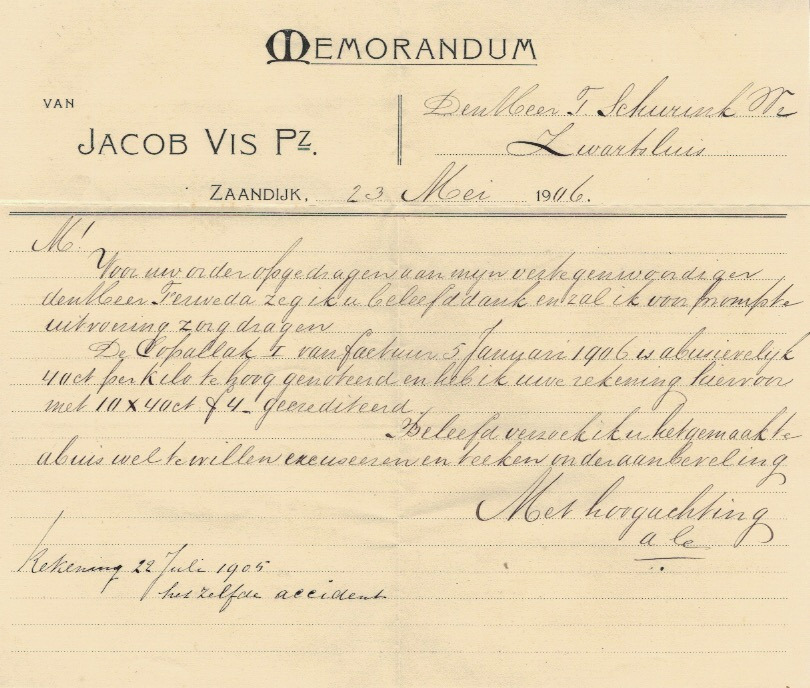 MEMORANDUM
VAN
JACOB VIS Pz.
Den Heer T Schurink Wz
Zwartsluis
ZAANDIJK, 23 Mei 1906.
M!
Voor uw order opgedragen aan mijn vertegenwoordiger
den Heer Ferweda zeg ik u beleefd dank en zal ik voor prompte
uitvoering zorgdragen
De Copallak I van factuur 5 Januari 1906 is abusievelijk
40ct per kilo te hoog genoteerd en heb ik uwe rekening hiervoor
met 10 x 40ct f 4_ gecrediteerd
Beleefd verzoek ik u het gemaakte
abuis wel te willen excuseeren en teeken onder aanbeveling
Met hoogachting
a le
Rekening 22 Juli 1905
het zelfde accident